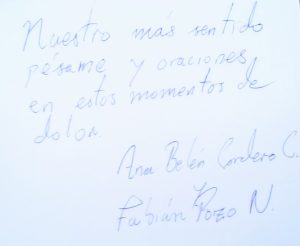 Nuestro más sentido
pésame y oraciones
en estos momentos de
dolor.
Ana Belén Cordero C.
Fabián Pozo N.